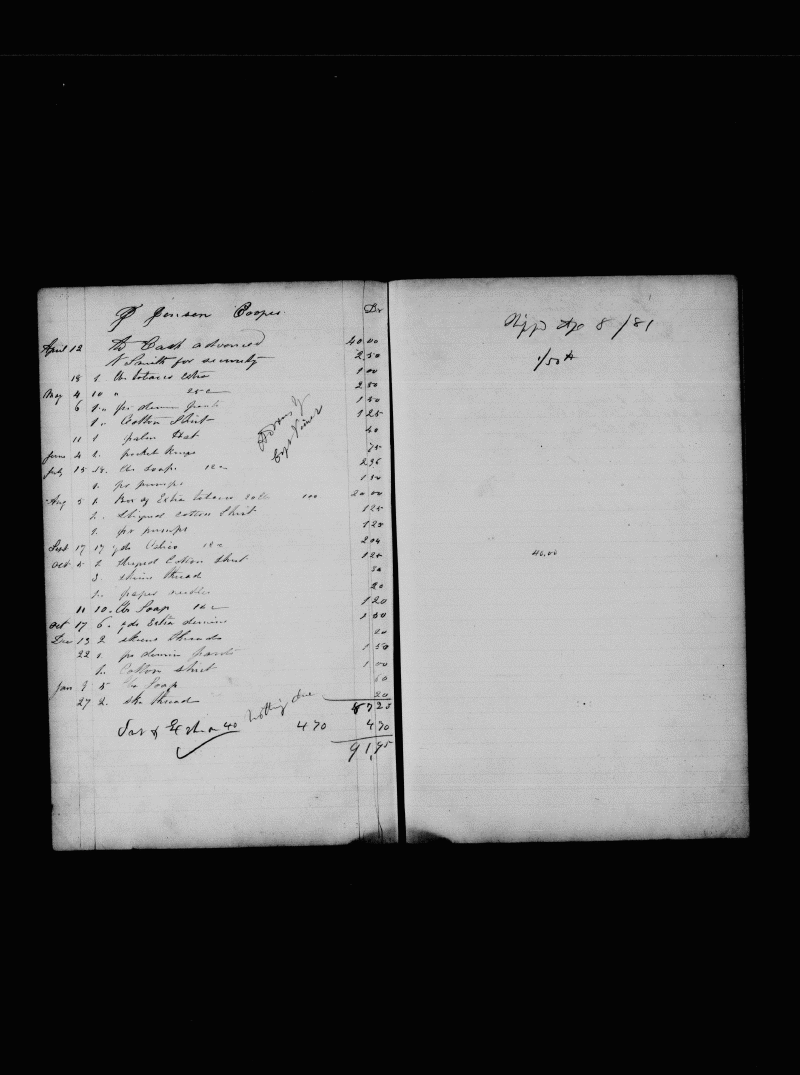 Jensen Cooper Dr
April 12 To Cash advanced 40 00
N Smith for security 2 50
18 1. lb tobacco extra 1 00
May 4 10 " 25c 2 50
6 1. " pr denim pants 1 50
1. " Cotton Shirt 1 25
11 1 palm Hat 40
June 4 1. pocket knife 75
July 15 18. lbs soap 12c 2 96
1. pr pumps 1 50
Aug 5 1. Box of Extra tobacco 20 lbs 100 20 00
1. Striped cotton Shirt 1 25
1. pr pumps 1 25
Sept 17 17 yds Calico 12c 2 04
Oct 5 1. Striped Cotton Shirt 1 25
3. skeins thread 30
2. paper needles 20
11 10. lbs Soap 12c 1 20
Oct 17 6. yds Extra denim 1 50
Dec 13 2 skeins threads 20
22 1. pr denim pants 1 50
1. Cotton shirt 1 00
Jan 1 5 lbs Soap 60
27 2. sks thread 20
87 25
nothing due
40 4 70 4 70
91,95
8 / 81
1/50th
40.00